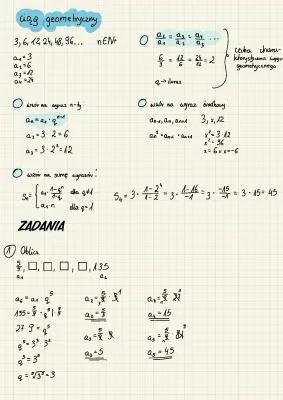 ciąg geometryczny
3, 6, 12, 24, 48, 96... n∈ℕ+
a₁ = 3
a₂ = 6
a₃ = 12
a₄ = 24
a₂/a₁ = a₃/a₂ = a₄/a₃ ...
6/3 = 12/6 = 24/12 = 2
q →
cecha
geometrycznego
wzór na wyraz n-ty:
aₙ = a₁ · qⁿ⁻¹
a₂ = 3 · 2 = 6
a₃ = 3 · 2² = 12
wzór na wyraz środkowy
aₙ₋₁, aₙ, aₙ₊₁ 3, x, 12
aₙ² = aₙ₋₁ · aₙ₊₁ x² = 3 · 12
x² = 36
x = 6 x = -6
wzór na sumę wyrazów:
Sₙ = { a₁ · 1-qⁿ/1-q dla q≠1
a₁ · n dla q=1
S₄ = 3 · 1-2⁴/1-2 = 3 · 1-16/-1 = 3 · -15/-1 = 3 · 15 = 45
ZADANIA
1 Oblicz
5/9, □, □, □, □, 135
a₁ a₆
a₆ = a₁ · q⁵
135 = 5/9 · q⁵
27 · 9 = q⁵
q⁵ = 3³ · 3²
q⁵ = 3⁵
q = ⁵√3⁵ = 3
a₂ = 5/9 · 3
a₂ = 5/3
a₃ = 5
a₄ = 15
a₅ = 45